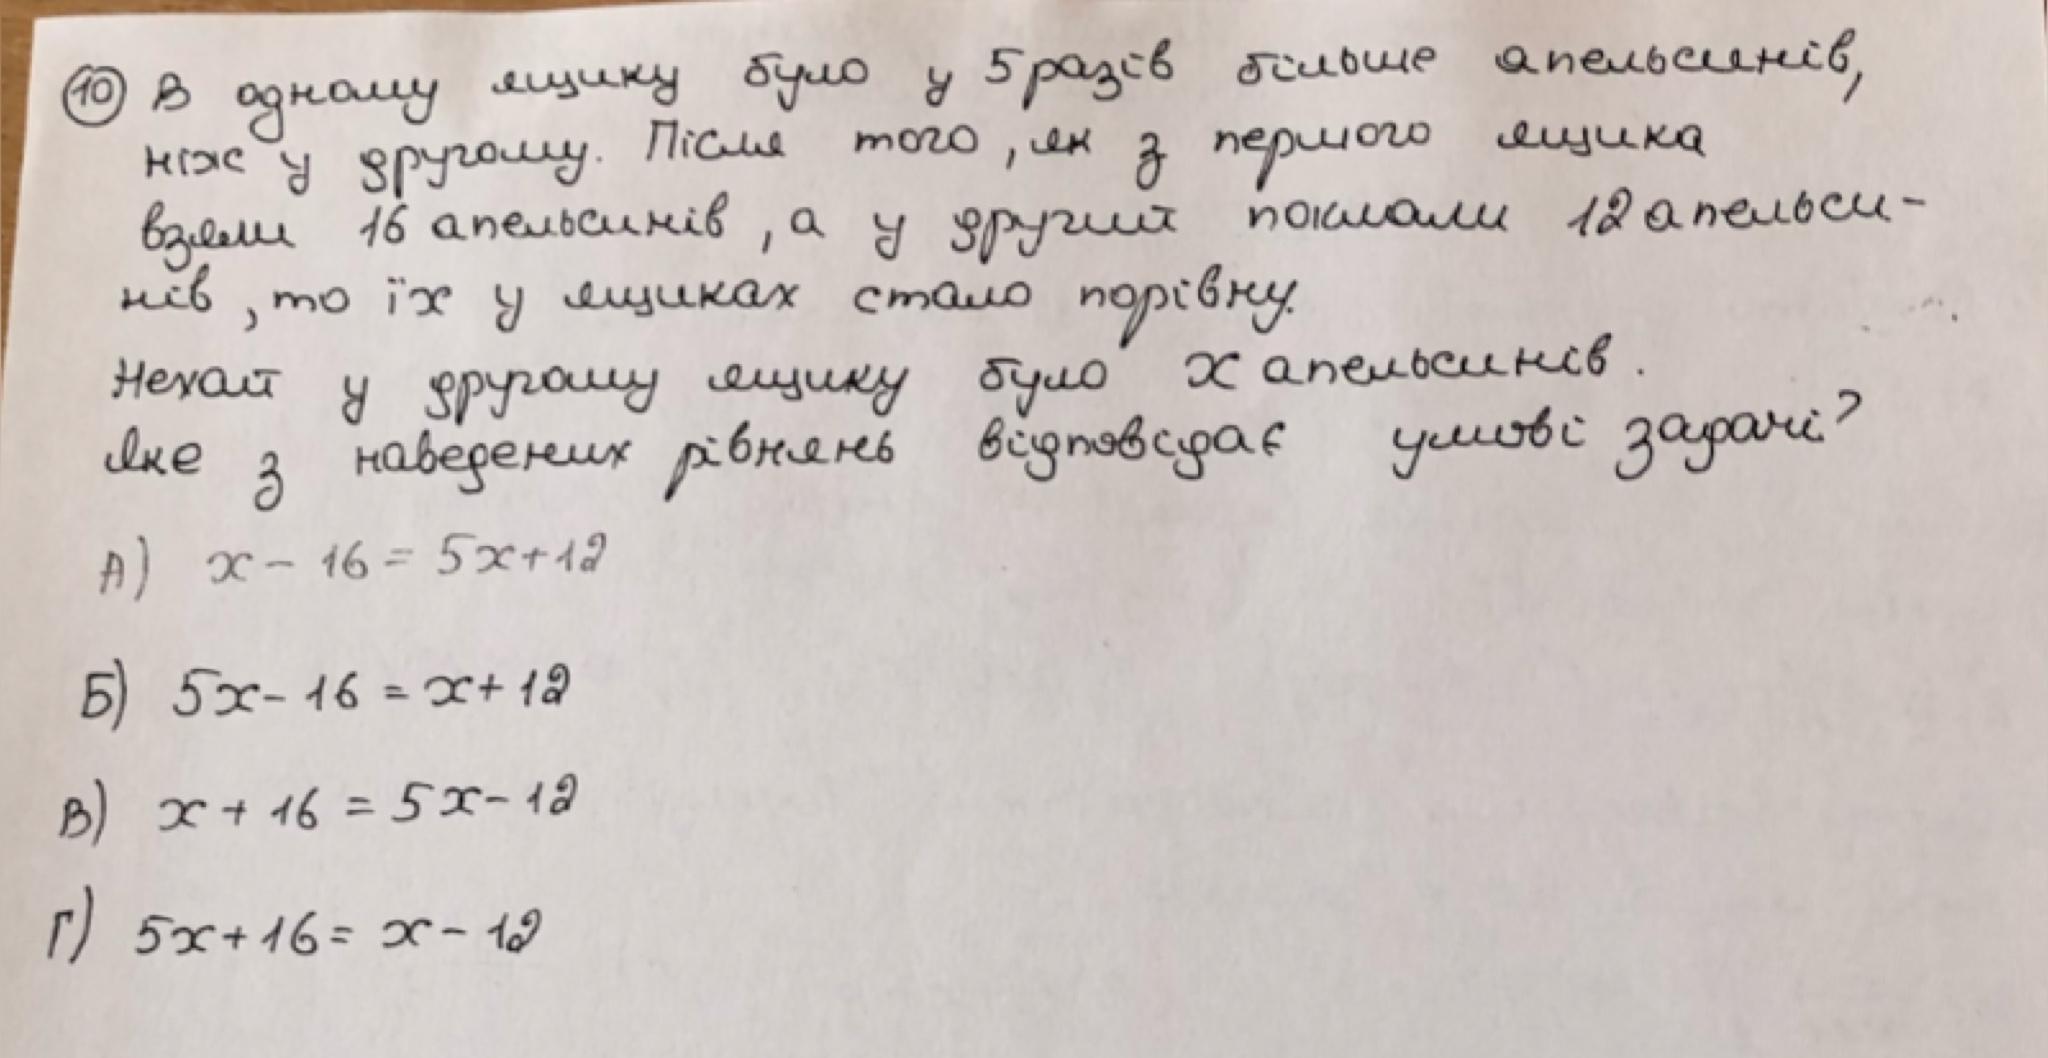 10 В одному ящику було у 5 разів більше апельсинів,
ніж у другому. Після того, як з першого ящика
взяли 16 апельсинів, а у другий поклали 12 апельси-
нів, то їх у ящиках стало порівну.
Нехай у другому ящику було x апельсинів.
Яке з наведених рівнянь відповідає умові задачі?
А) x - 16 = 5x + 12
Б) 5x - 16 = x + 12
В) x + 16 = 5x - 12
Г) 5x + 16 = x - 12